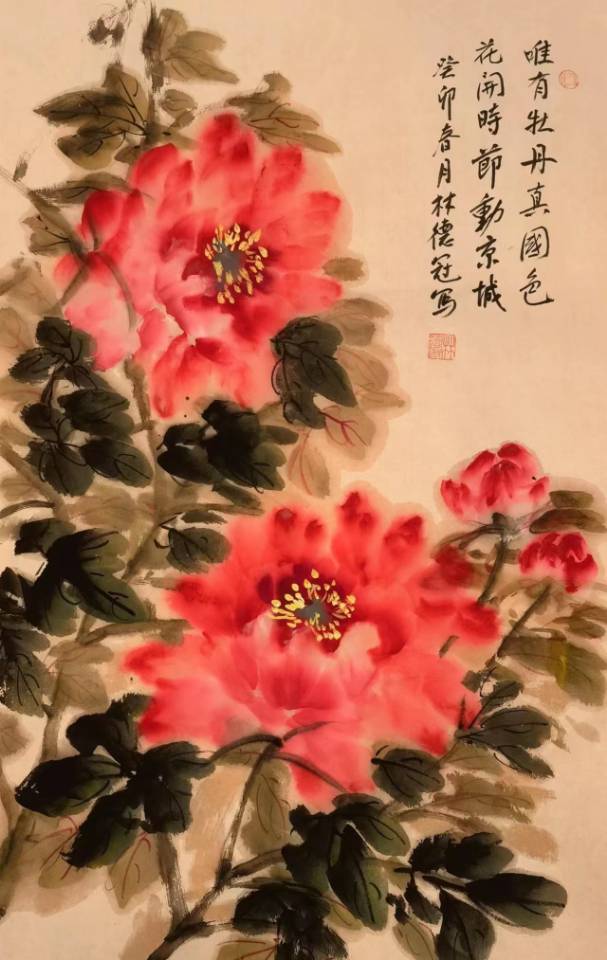 唯有牡丹真國色
花开時節動京城
癸卯春月林德冠写